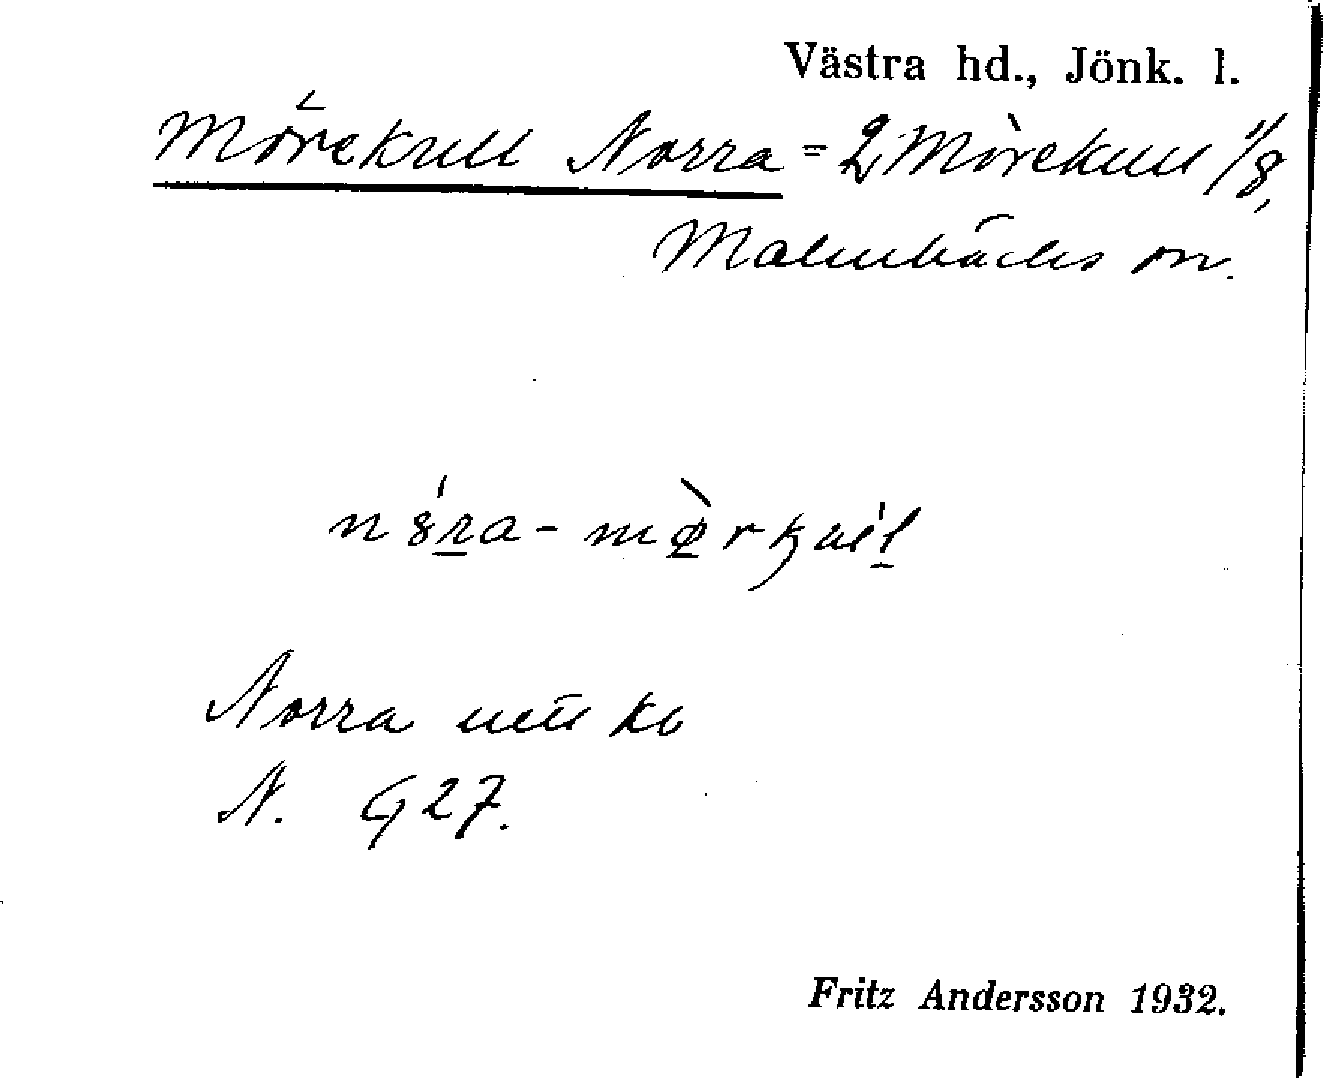 Västra hd., Jönk. l.
Mörekull Norra = 2 Mörekull 1/8,
Malmbäcks sn.
Norra
N. G 27.
Fritz Andersson 1932.